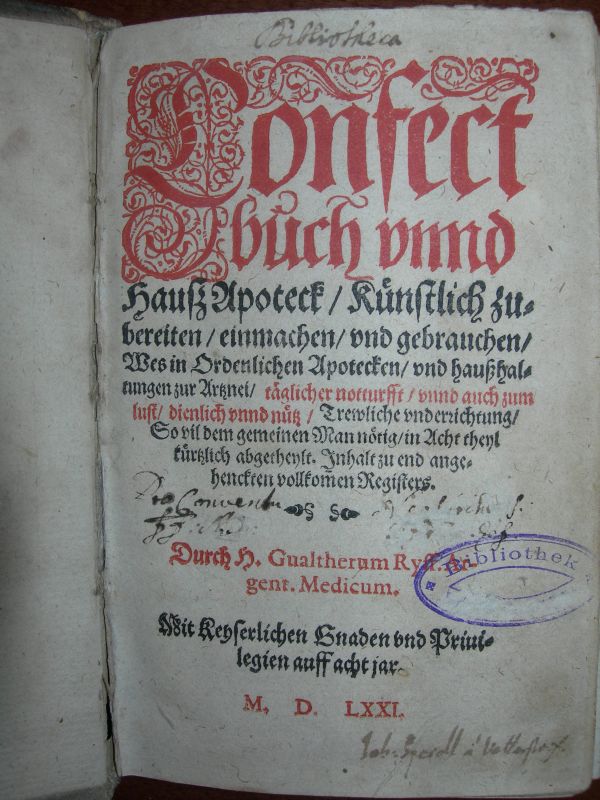 Bibliotheca
Confect
bůch vnnd
Hauſz Apoteck / Künſtlich zu-
bereiten / einmachen / vnd gebrauchen /
Wes in Ordenlichen Apotecken / vnd haußhal-
tungen zur Artznei / täglicher notturfft / vnnd auch zum
luſt / dienlich vnnd nütz / Trewliche vnderrichtung /
So vil dem gemeinen Man nötig / in Acht theyl
kürtzlich abgetheylt. Inhalt zu end ange-
henckten vollkom̄en Regiſters.
Pro Conventu
Durch H. Gualtherum Ryff. Ar-
gent. Medicum.
Bibliothek
Mit Keyſerlichen Gnaden vnd Priui-
legien auff acht jar.
M. D. LXXI.